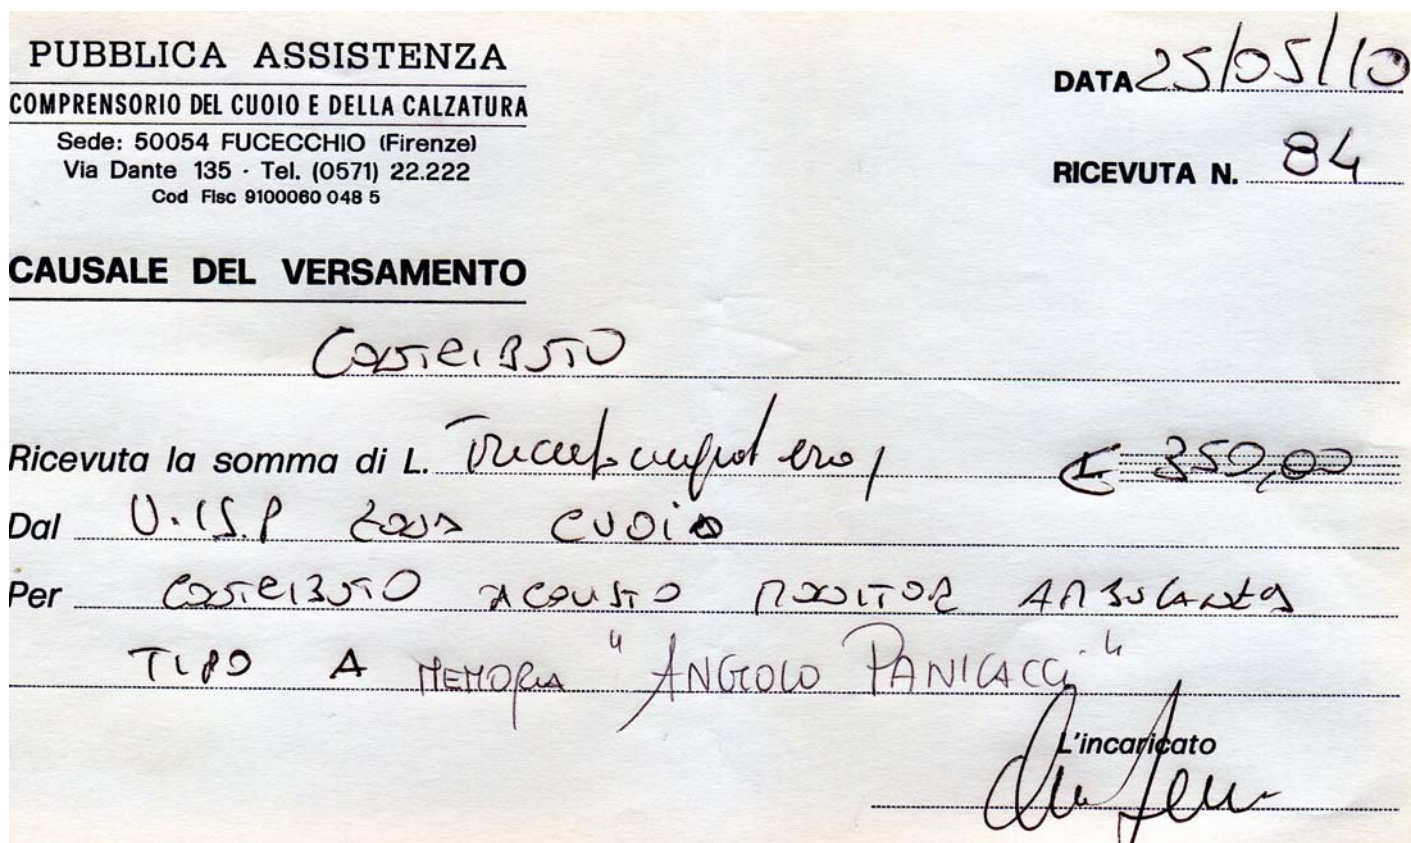 PUBBLICA ASSISTENZA
COMPRENSORIO DEL CUOIO E DELLA CALZATURA
Sede: 50054 FUCECCHIO (Firenze)
Via Dante 135 · Tel. (0571) 22.222
Cod Fisc 9100060 048 5
DATA 25/05/10
RICEVUTA N. 84
CAUSALE DEL VERSAMENTO
CONTRIBUTO
Ricevuta la somma di L. Trecentocinquanta euro / € 350,00
Dal U.I.S.P ZONA CUOIO
Per CONTRIBUTO ACQUISTO MONITOR AMBULANZA
TIPO A MEMORIA "ANGIOLO PANICACCI"
L'incaricato